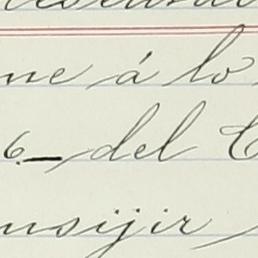 ne á lo
6 _ del C
nsijir